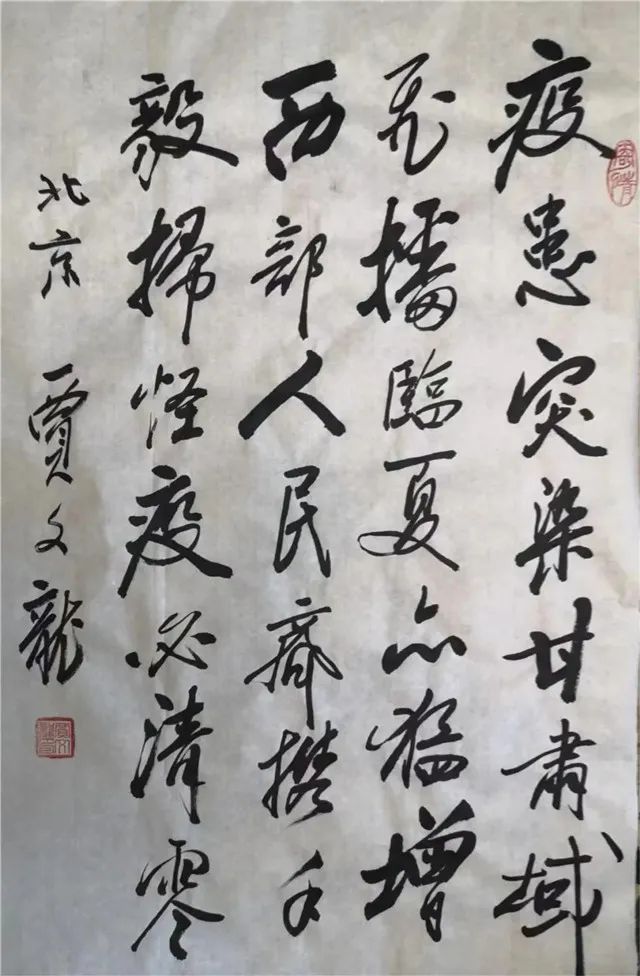 疫患突染甘肃域
飞播臨夏亦猛增
西部人民齊携手
毅掃怪疫必清零
北京 賈文龍